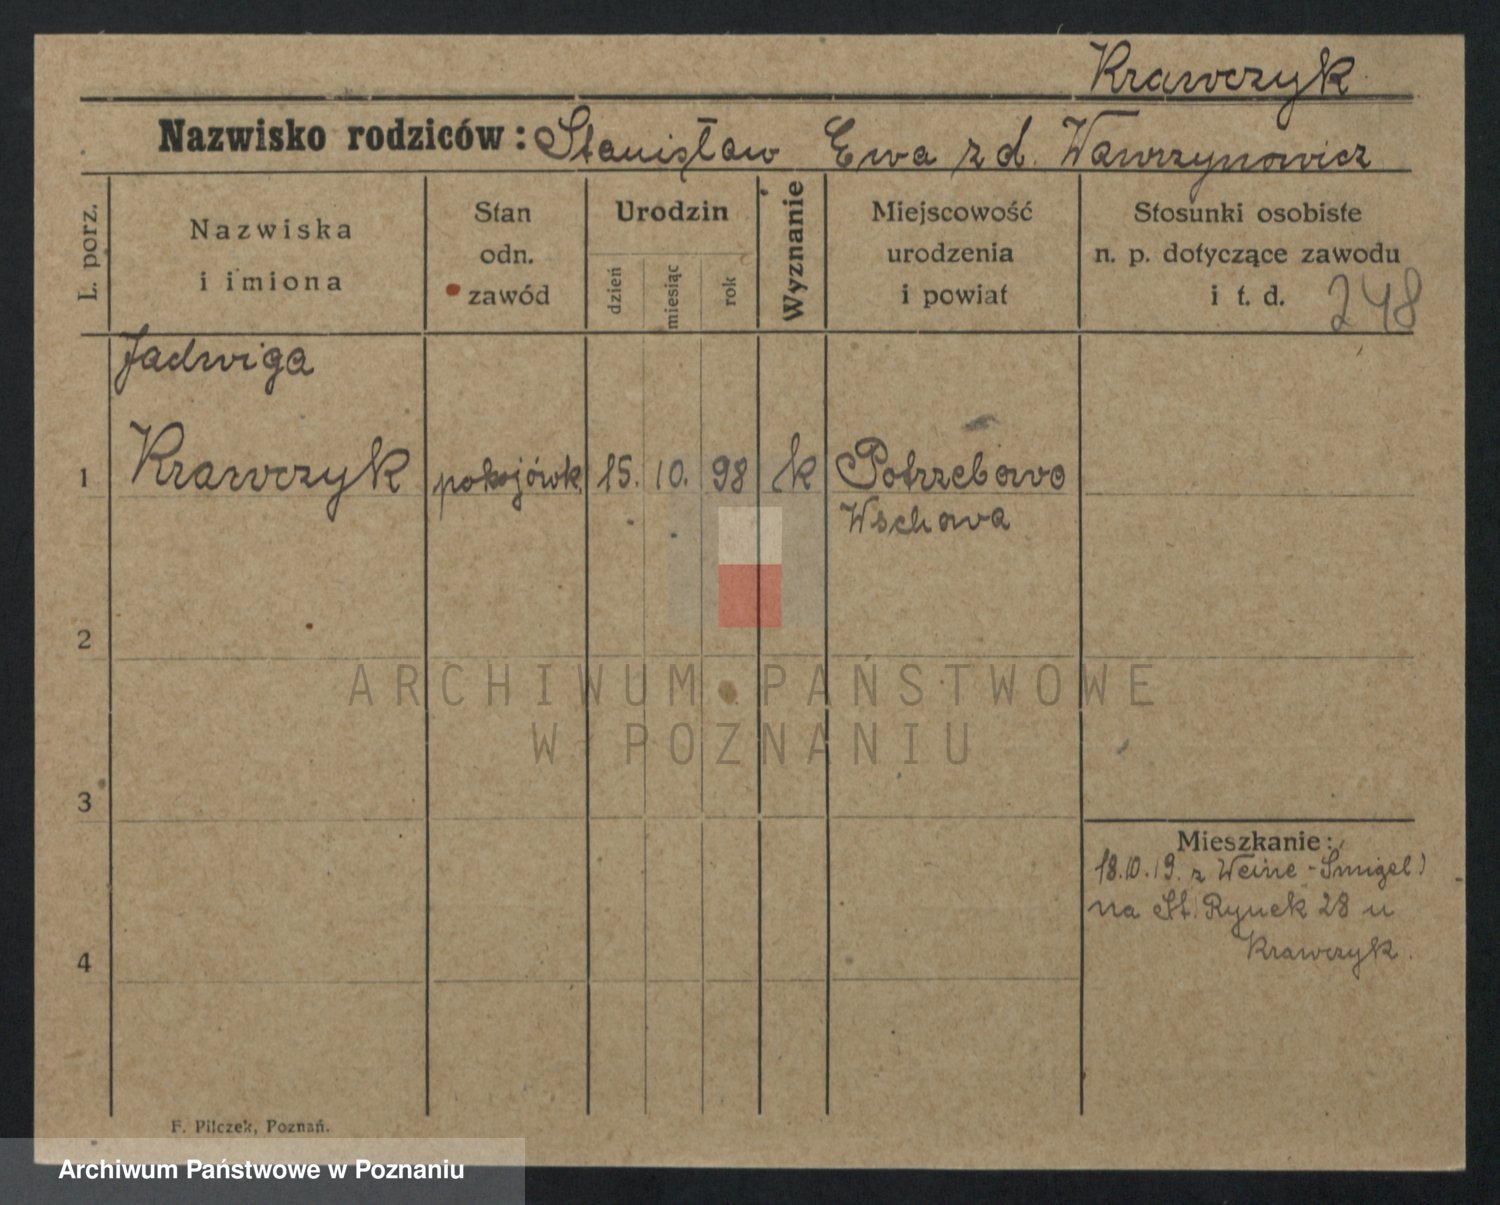 Krawczyk
Nazwisko rodziców: Stanisław Ewa z d. Wawrzynowicz
L. porz.
Nazwiska i imiona
Stan odn. zawód
Urodzin
dzień
miesiąc
rok
Wyznanie
Miejscowość urodzenia i powiat
Stosunki osobiste n. p. dotyczące zawodu i t. d.
248
Jadwiga
1 Krawczyk pokojówk. 15. 10. 98 k Potrzebowo
Wschowa
2
ARCHIWUM PAŃSTWOWE
W POZNANIU
3
Mieszkanie:
18.10.19. z Weine - Śmigel)
na St. Rynek 28 u
Krawczyk.
4
F. Pilczek, Poznań.
Archiwum Państwowe w Poznaniu